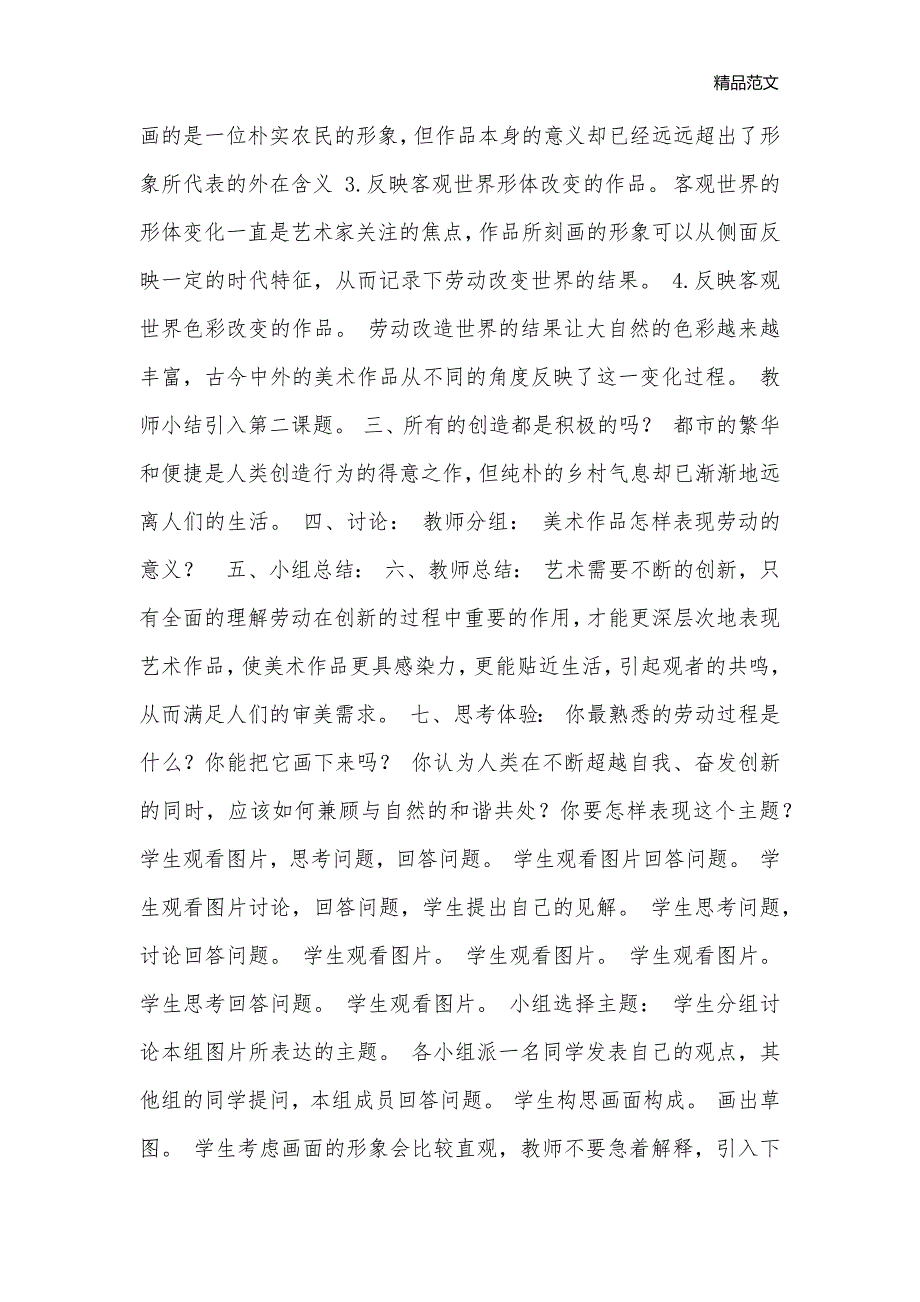 精品范文
画的是一位朴实农民的形象，但作品本身的意义却已经远远超出了形
象所代表的外在含义 3.反映客观世界形体改变的作品。 客观世界的
形体变化一直是艺术家关注的焦点，作品所刻画的形象可以从侧面反
映一定的时代特征，从而记录下劳动改变世界的结果。 4.反映客观
世界色彩改变的作品。 劳动改造世界的结果让大自然的色彩越来越
丰富，古今中外的美术作品从不同的角度反映了这一变化过程。 教
师小结引入第二课题。 三、所有的创造都是积极的吗？ 都市的繁华
和便捷是人类创造行为的得意之作，但纯朴的乡村气息却已渐渐地远
离人们的生活。 四、讨论： 教师分组： 美术作品怎样表现劳动的
意义？ 五、小组总结： 六、教师总结： 艺术需要不断的创新，只
有全面的理解劳动在创新的过程中重要的作用，才能更深层次地表现
艺术作品，使美术作品更具感染力，更能贴近生活，引起观者的共鸣，
从而满足人们的审美需求。 七、思考体验： 你最熟悉的劳动过程是
什么？你能把它画下来吗？ 你认为人类在不断超越自我、奋发创新
的同时，应该如何兼顾与自然的和谐共处？你要怎样表现这个主题？
学生观看图片，思考问题，回答问题。 学生观看图片回答问题。 学
生观看图片讨论，回答问题，学生提出自己的见解。 学生思考问题，
讨论回答问题。 学生观看图片。 学生观看图片。 学生观看图片。
学生思考回答问题。 学生观看图片。 小组选择主题： 学生分组讨
论本组图片所表达的主题。 各小组派一名同学发表自己的观点，其
他组的同学提问，本组成员回答问题。 学生构思画面构成。 画出草
图。 学生考虑画面的形象会比较直观，教师不要急着解释，引入下